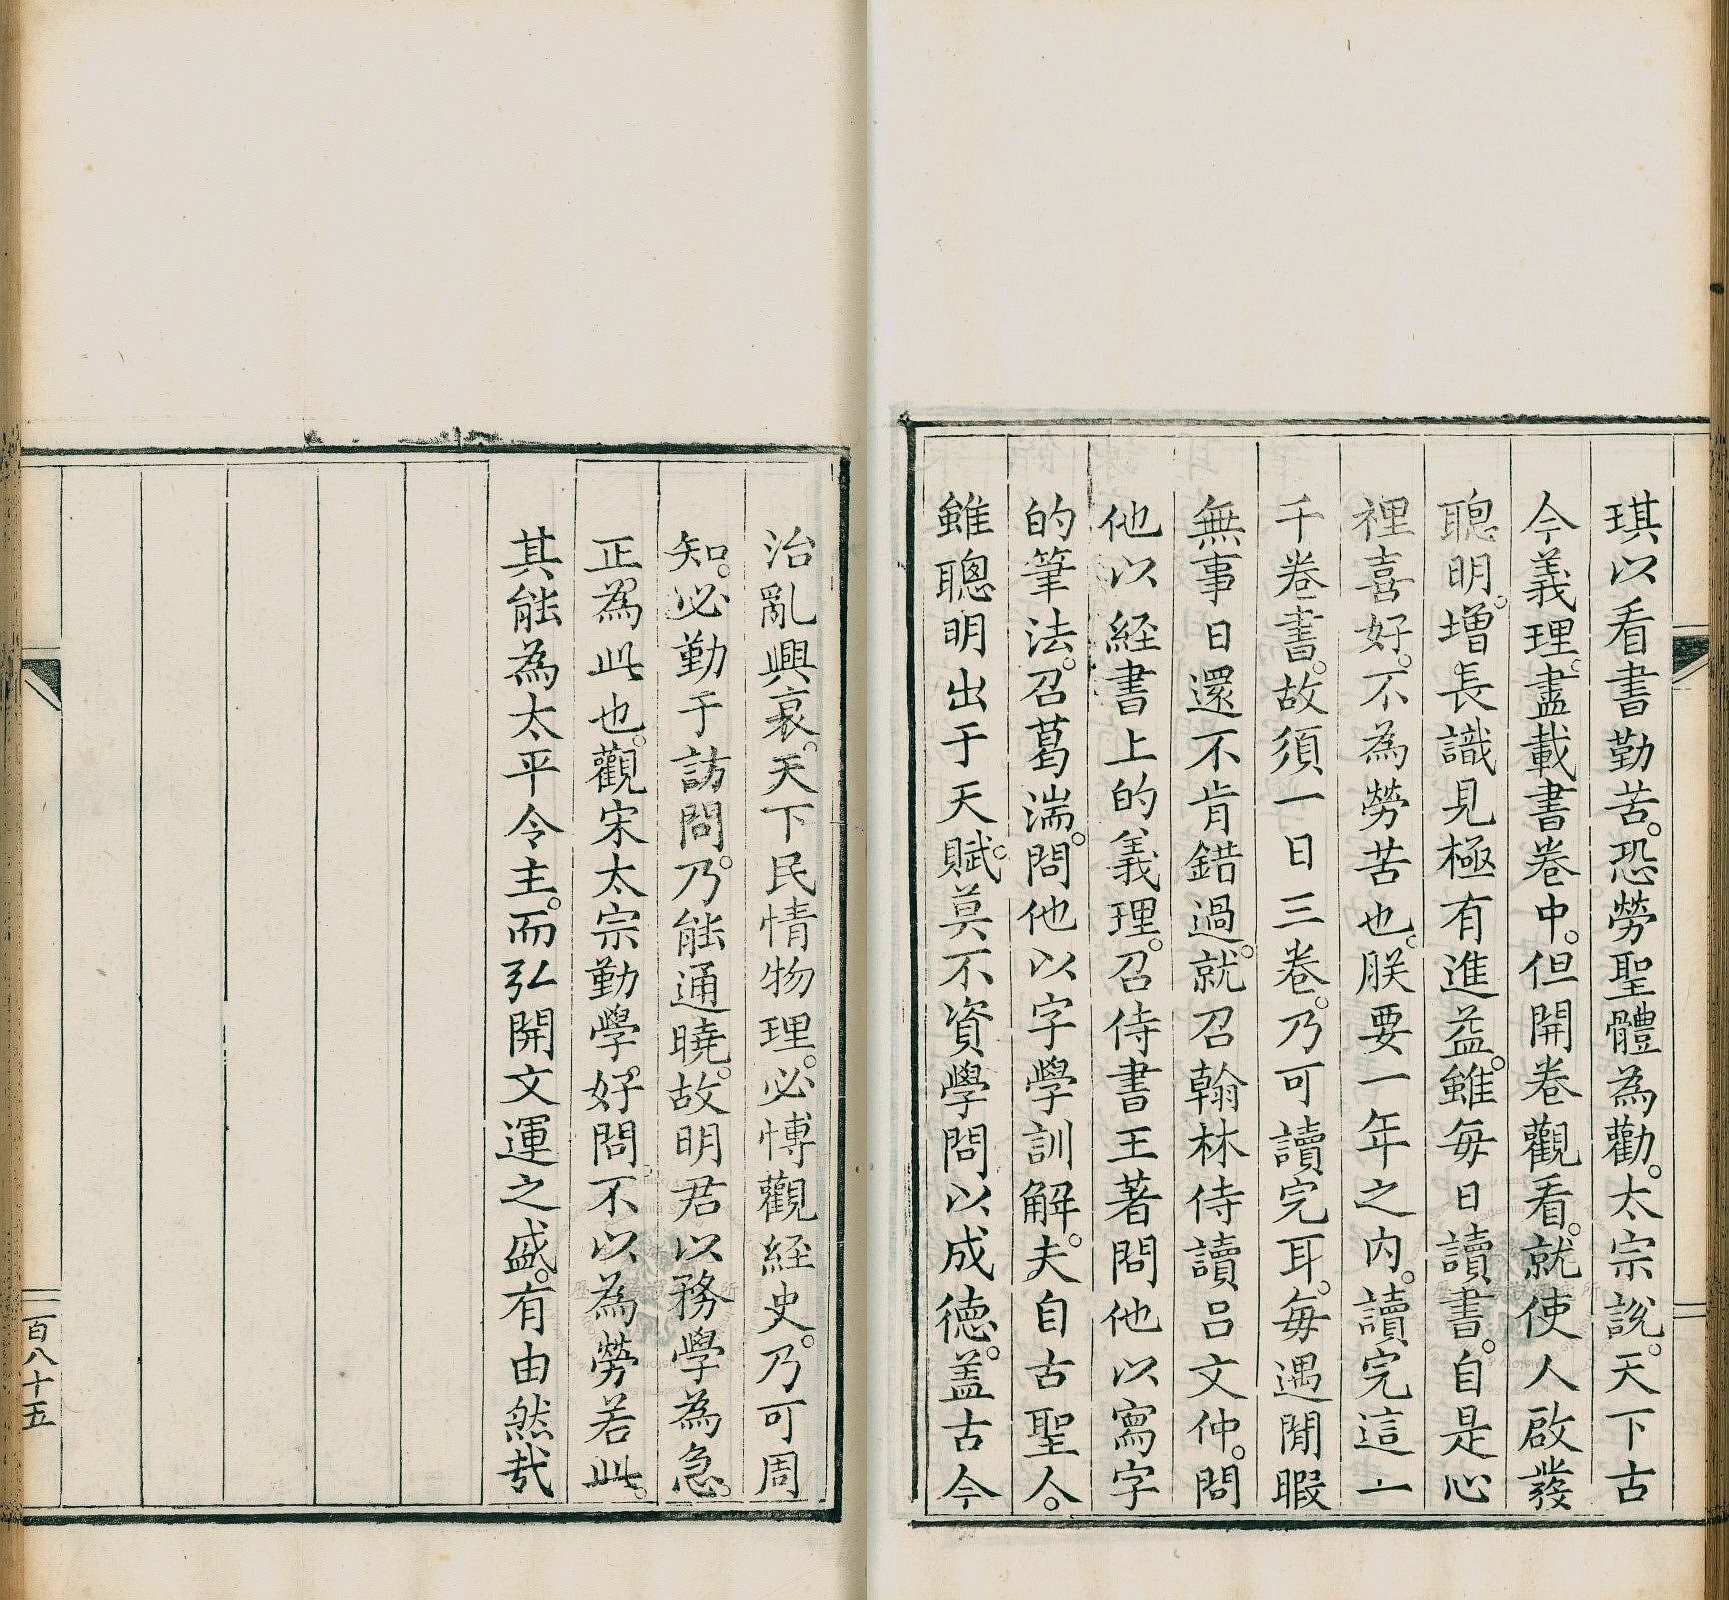 琪以看書勤苦。恐勞聖體為勸。太宗說。天下古
今義理。盡載書卷中。但開卷觀看。就使人啟發
聰明。增長識見極有進益。雖每日讀書。自是心
裡喜好。不為勞苦也。朕要一年之內。讀完這一
千卷書。故須一日三卷。乃可讀完耳。每遇閒暇
無事日還不肯錯過。就召翰林侍讀呂文仲。問
他以経書上的義理。召侍書王著問他以寫字
的筆法。召葛湍。問他以字學訓解。夫自古聖人。
雖聰明出于天賦。莫不資學問以成德。盖古今
治亂興衰。天下民情物理。必博觀経史。乃可周
知。必勤于訪問。乃能通曉。故明君以務學為急。
正為此也。觀宋太宗勤學。好問。不以為勞若此。
其能為太平令主。而弘開文運之盛。有由然哉
一百八十五